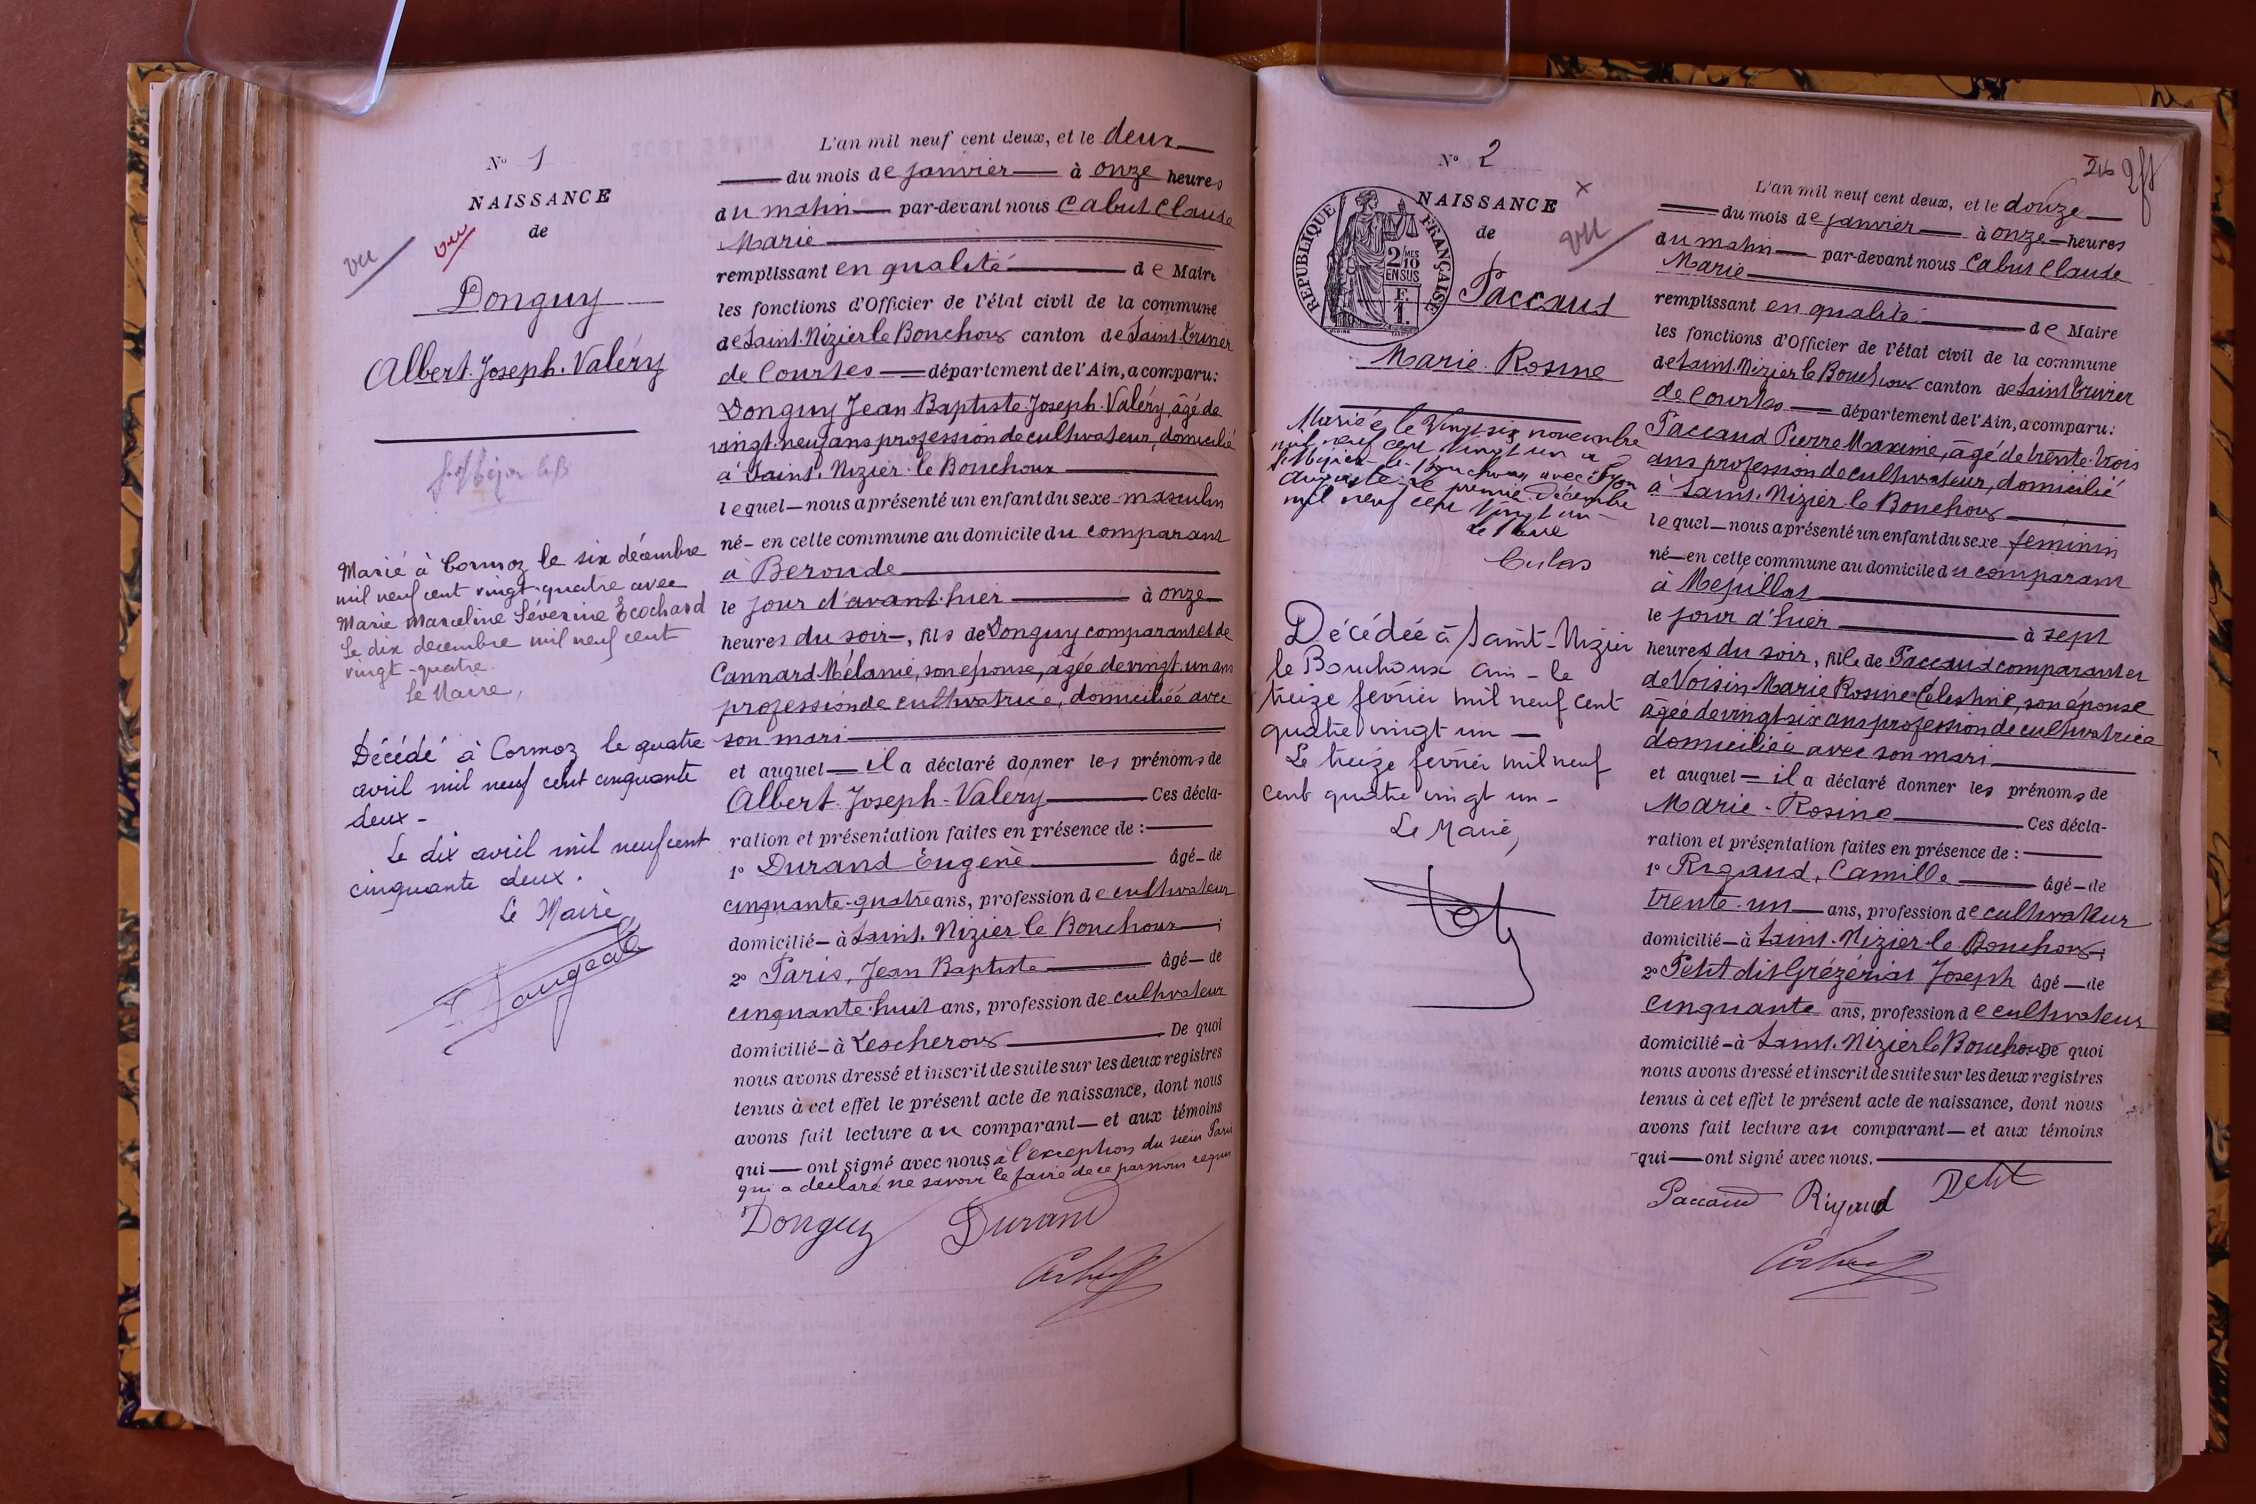 N° 1
NAISSANCE
de
vu
vu
Donguy
Albert Joseph Valéry
Marié à Cormoz le six décembre
mil neuf cent vingt-quatre avec
Marie Marceline Séverine Ecochard
Le dix decembre mil neuf cent
vingt-quatre.
Le Maire,
Décédé à Cormoz le quatre
avril mil neuf cent cinquante
deux -
Le dix avril mil neuf cent
cinquante deux.
Le Maire
L'an mil neuf cent deux, et le deux
du mois de janvier à onze heures
du matin par-devant nous Cabut Claude
Marie
remplissant en qualité de Maire
les fonctions d'Officier de l'état civil de la commune
de Saint. Nizier le Bouchoux canton de Saint. Trivier
de Courtes département de l'Ain, a comparu:
Donguy Jean Baptiste Joseph Valéry, âgé de
vingt-neuf ans profession de cultivateur, domicilié
à Saint. Nizier le Bouchoux
lequel nous a présenté un enfant du sexe masculin
né en cette commune au domicile du comparant
à Beronde
le jour d'avant-hier à onze
heures du soir, fils de Donguy comparant et de
Cannard Mélanie, son épouse, âgée de vingt un ans
profession de cultivatrice, domiciliée avec
son mari
et auquel il a déclaré donner les prénoms de
Albert Joseph-Valéry Ces décla-
ration et présentation faites en présence de :
1° Durand Eugène âgé de
cinquante-quatre ans, profession de cultivateur
domicilié à Saint. Nizier le Bouchoux ;
2° Paris, Jean Baptiste âgé de
cinquante-huit ans, profession de cultivateur
domicilié à Lescheroux De quoi
nous avons dressé et inscrit de suite sur les deux registres
tenus à cet effet le présent acte de naissance, dont nous
avons fait lecture au comparant et aux témoins
qui ont signé avec nous à l'exception du sieur Paris
qui a déclaré ne savoir le faire de ce par nous requis
Donguy Durand
N° 2
NAISSANCE
de
vu
REPUBLIQUE FRANÇAISE
2/MES
10
EN SUS
F.
1.
Paccaud
Marie Rosine
Mariée le Vingt six novembre
mil neuf cent vingt un à
St Nizier-le-Bouchoux avec
Auguste. Le premier Décembre
mil neuf cent vingt un
Le Maire
Décédée à Saint-Nizier
le Bouchoux Ain - le
treize février mil neuf cent
quatre vingt un -
Le treize février mil neuf
cent quatre vingt un -
Le Maire,
216
L'an mil neuf cent deux, et le douze
du mois de janvier à onze heures
du matin par-devant nous Cabut Claude
Marie
remplissant en qualité de Maire
les fonctions d'Officier de l'état civil de la commune
de Saint. Nizier le Bouchoux canton de Saint Trivier
de Courtes département de l'Ain, a comparu:
Paccaud Pierre Maxime, âgé de trente-trois
ans profession de cultivateur, domicilié
à Saint. Nizier le Bouchoux
lequel nous a présenté un enfant du sexe féminin
né en cette commune au domicile du comparant
à Mépillat
le jour d'hier à sept
heures du soir, fille de Paccaud comparant et
de Voisin Marie Rosine Célestine, son épouse
âgée de vingt-six ans profession de cultivatrice
domiciliée avec son mari
et auquel il a déclaré donner les prénoms de
Marie-Rosine Ces décla-
ration et présentation faites en présence de :
1° Rigaud, Camille âgé de
trente-un ans, profession de cultivateur
domicilié à Saint. Nizier le Bouchoux ;
2° Petit dit Grézériat Joseph âgé de
cinquante ans, profession de cultivateur
domicilié à Saint. Nizier le Bouchoux De quoi
nous avons dressé et inscrit de suite sur les deux registres
tenus à cet effet le présent acte de naissance, dont nous
avons fait lecture au comparant et aux témoins
qui ont signé avec nous.
Paccaud Rigaud Petit